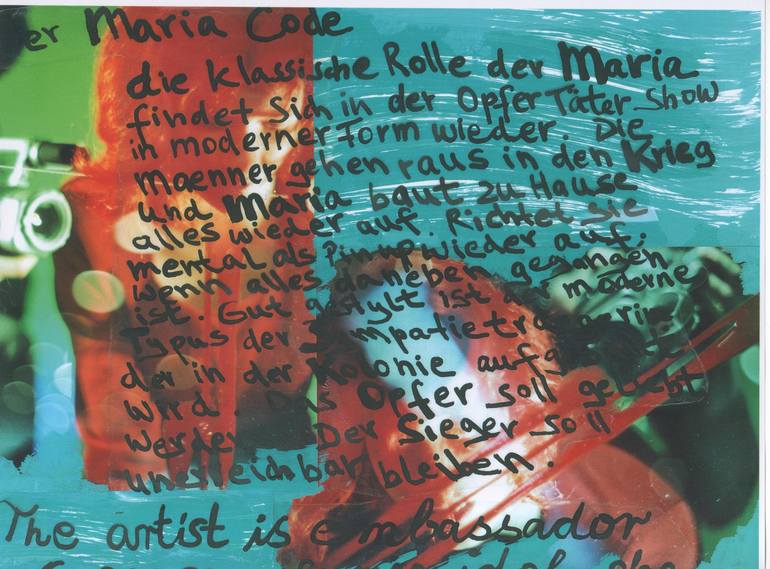 er Maria Code
die klassische Rolle der Maria
findet Sich in der Opfer Täter Show
in moderner Form wieder. Die
Maenner gehen raus in den Krieg
und Maria baut zu Hause
alles wieder auf. Richtet sie
mental als Pinup wieder auf,
wenn alles daneben gegangen
ist. Gut gestylt ist der moderne
Typus der
der in der Kolonie
wird. Das Opfer soll geliebt
werden. Der Sieger soll
unerreichbar bleiben.
The artist is embassador